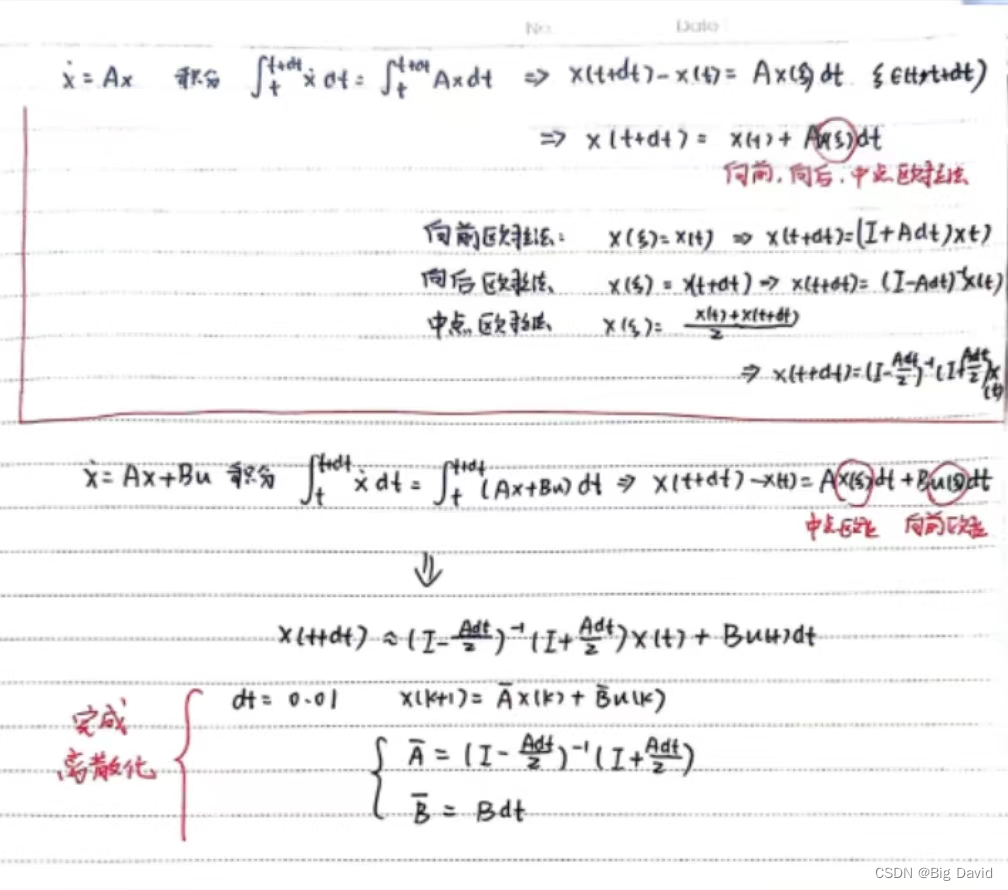 No. Date
ẋ = Ax 积分 ∫ₜᵗ⁺ᵈᵗ ẋ dt = ∫ₜᵗ⁺ᵈᵗ Ax dt ⇒ x(t+dt) - x(t) = Ax(ξ)dt ξ∈(t,t+dt)
⇒ x(t+dt) = x(t) + Ax(ξ)dt
向前,向后,中点欧拉法
向前欧拉法: x(ξ)=x(t) ⇒ x(t+dt)=(I+Adt)x(t)
向后欧拉法 x(ξ) = x(t+dt) ⇒ x(t+dt) = (I-Adt)⁻¹x(t)
中点欧拉法 x(ξ) = (x(t)+x(t+dt))/2
⇒ x(t+dt)=(I-Adt/2)⁻¹(I+Adt/2)x(t)
ẋ = Ax+Bu 积分 ∫ₜᵗ⁺ᵈᵗ ẋ dt = ∫ₜᵗ⁺ᵈᵗ (Ax+Bu) dt ⇒ x(t+dt) -x(t) = Ax(ξ)dt + Bu(ξ)dt
中点欧拉 向前欧拉
⇓
x(t+dt) ≈ (I-Adt/2)⁻¹(I+Adt/2)x(t) + Bu(t)dt
dt = 0.01 x(k+1) = Āx(k) + B̄u(k)
完成
离散化
Ā = (I-Adt/2)⁻¹(I+Adt/2)
B̄ = Bdt
CSDN @Big David